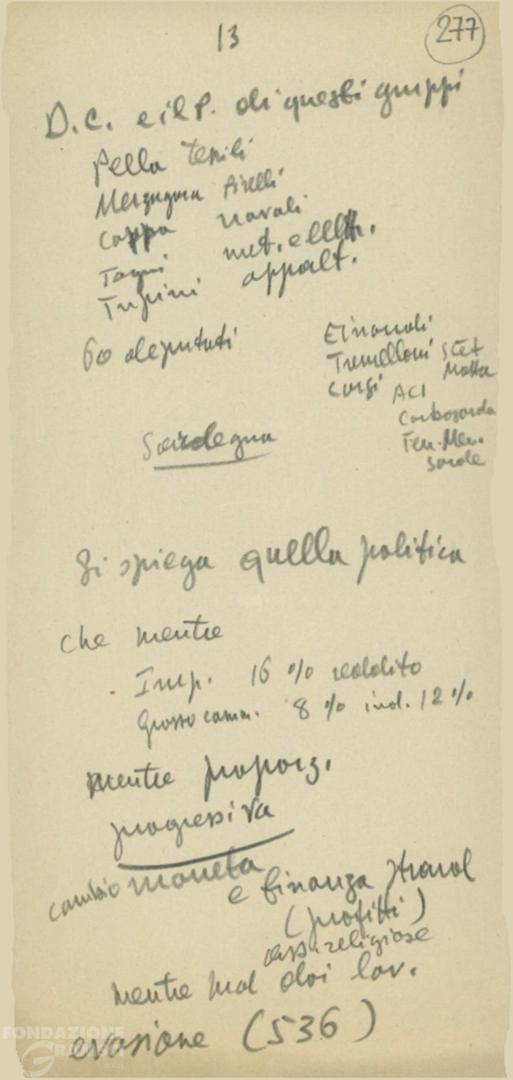 13
277
D.C. e il P. di questi gruppi
Pella tessili
Merzagora Pirelli
Cappa navali
Togni met. e elettr.
Tupini appalt.
60 deputati
Einaudi
Tremelloni Stet
Corsi Motta
ACI
Carbosarda
Ferr. Mer.
Sarde
Sardegna
Si spiega quella politica
che mentre
Imp. 16 % reddito
Grosso comm. 8 % ind. 12 %
mentre proporz.
progressiva
cambio moneta
e finanza straord
(profitti)
ass. religiose
mentre dai lav.
evasione (536)
FONDAZIONE
GRAMSCI